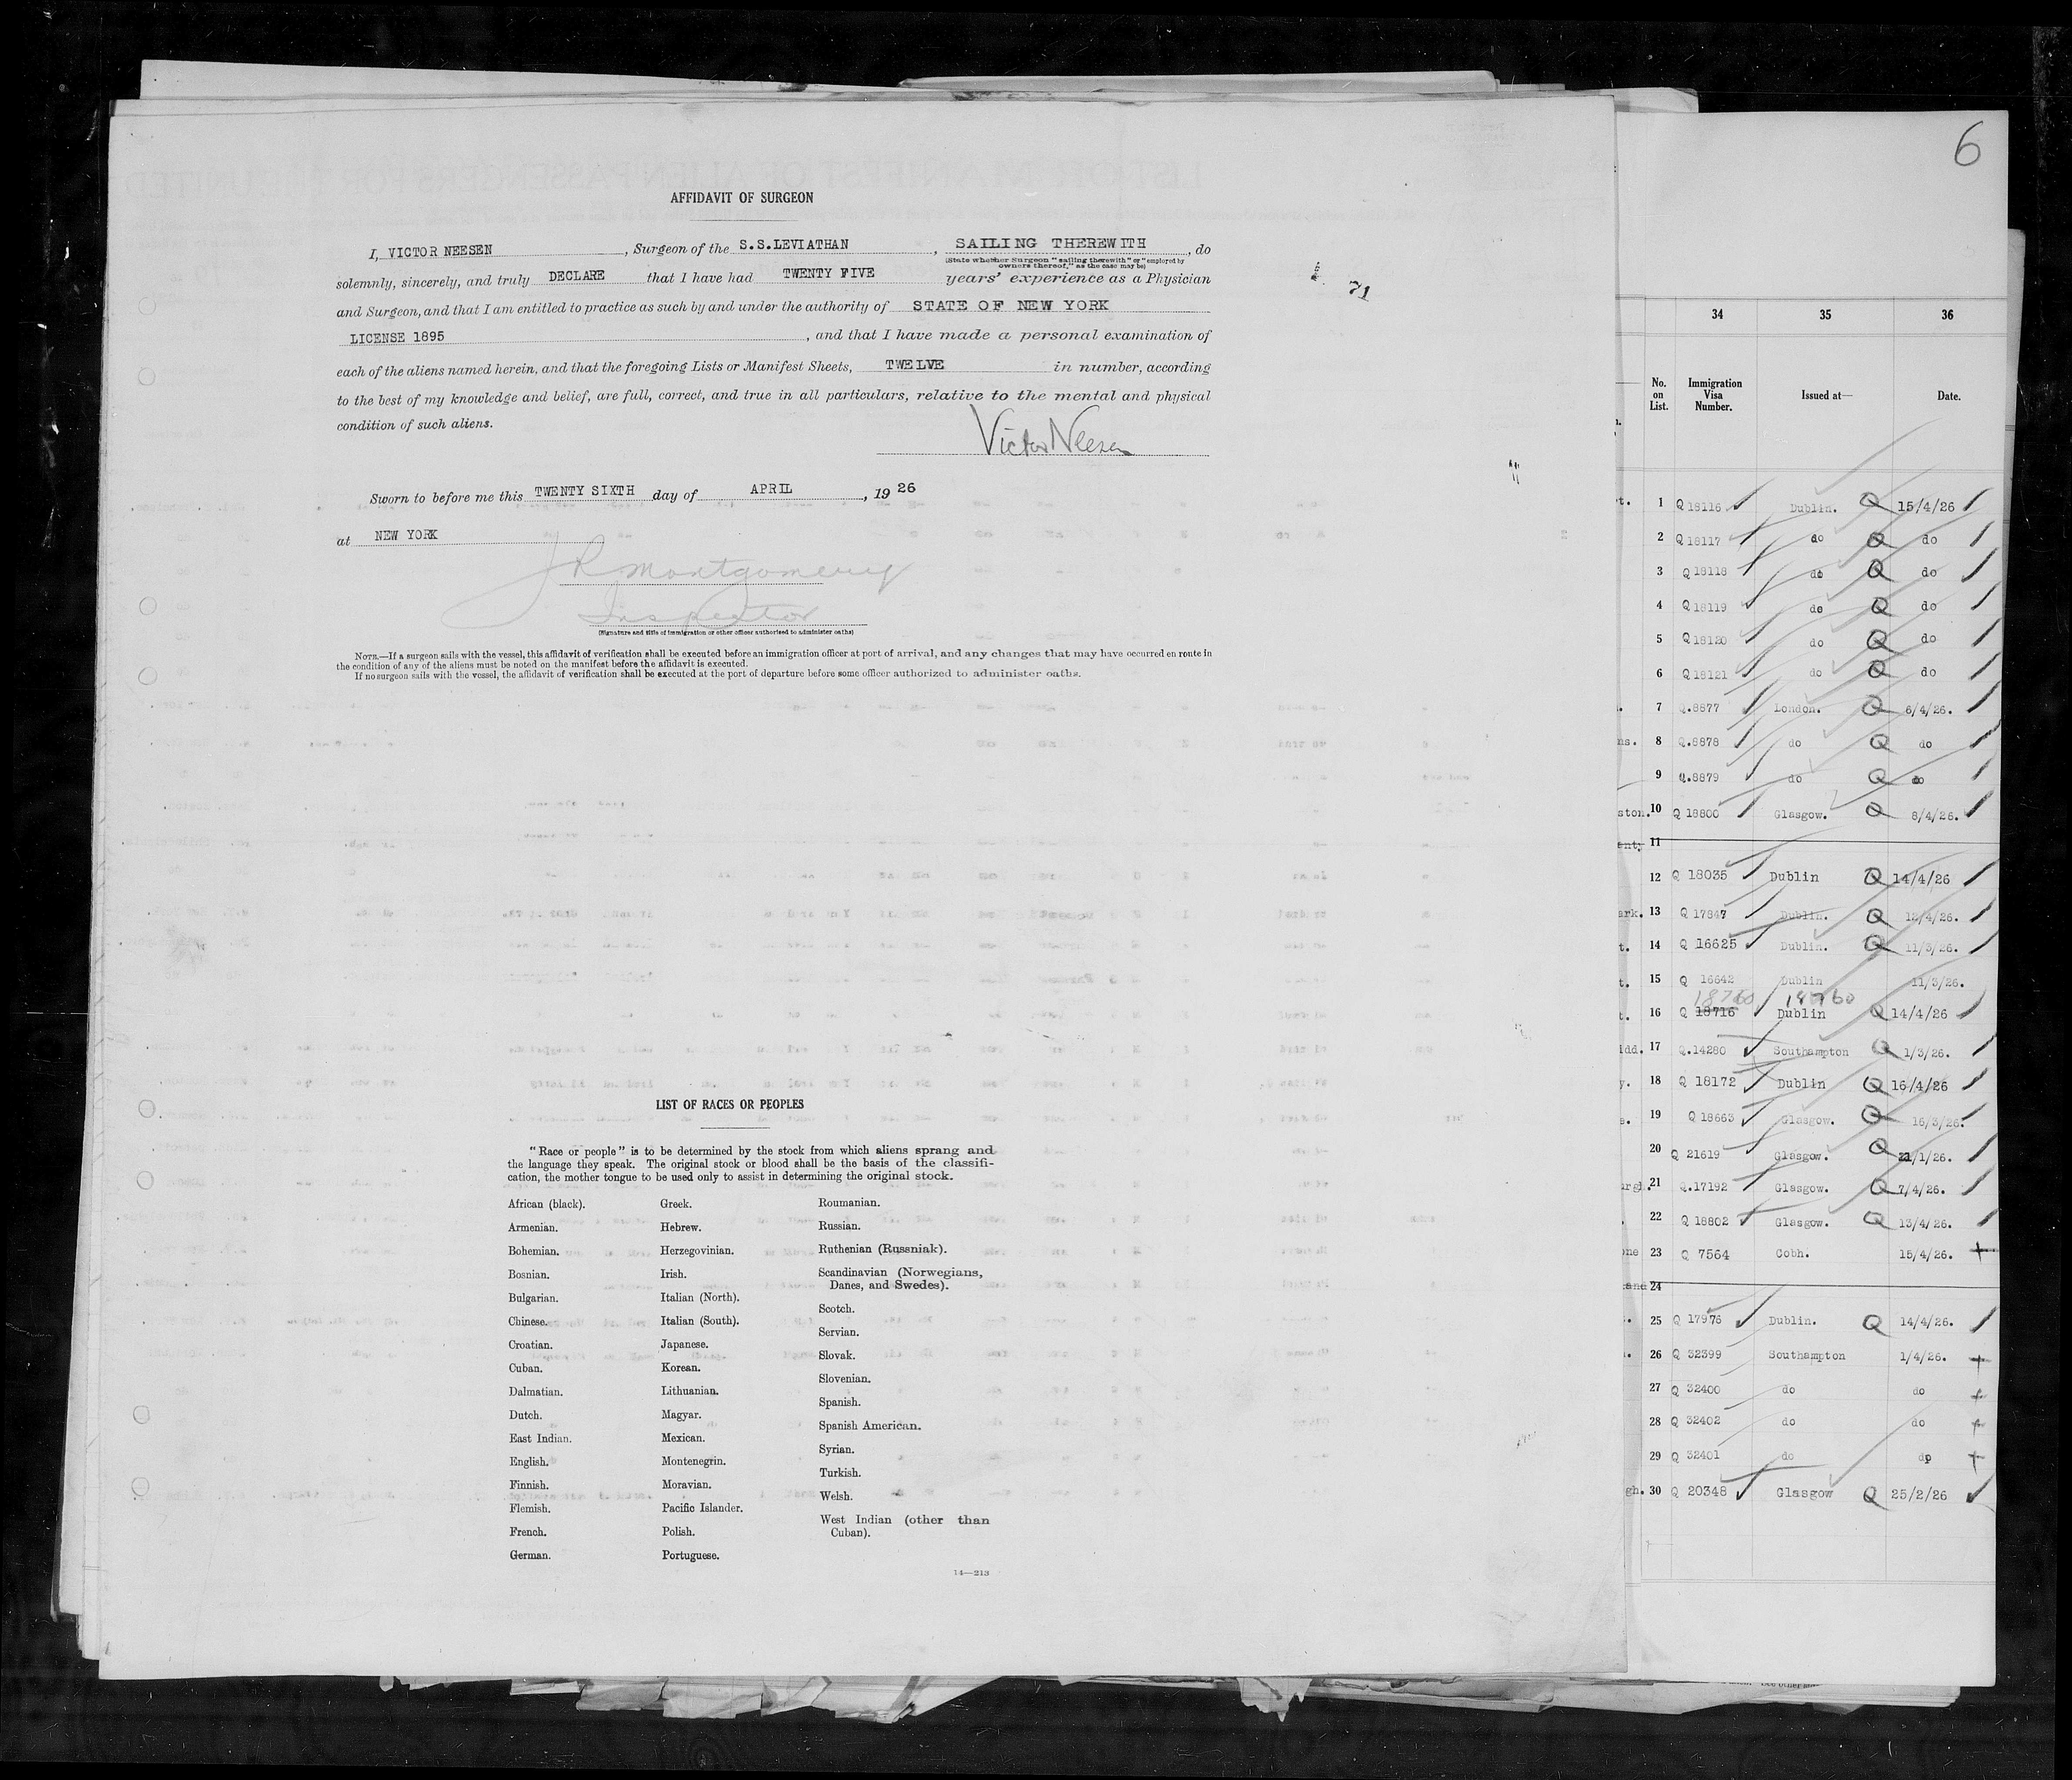 AFFIDAVIT OF SURGEON
I, VICTOR NEESEN, Surgeon of the S.S.LEVIATHAN, SAILING THEREWITH, do
(State whether Surgeon "sailing therewith" or "employed by owners thereof," as the case may be)
solemnly, sincerely, and truly DECLARE that I have had TWENTY FIVE years' experience as a Physician
and Surgeon, and that I am entitled to practice as such by and under the authority of STATE OF NEW YORK
LICENSE 1895, and that I have made a personal examination of
each of the aliens named herein, and that the foregoing Lists or Manifest Sheets, TWELVE in number, according
to the best of my knowledge and belief, are full, correct, and true in all particulars, relative to the mental and physical
condition of such aliens.
Victor Neesen
Sworn to before me this TWENTY SIXTH day of APRIL, 19 26
at NEW YORK
J R Montgomery
Inspector
(Signature and title of immigration or other officer authorized to administer oaths)
NOTE.—If a surgeon sails with the vessel, this affidavit of verification shall be executed before an immigration officer at port of arrival, and any changes that may have occurred en route in
the condition of any of the aliens must be noted on the manifest before the affidavit is executed.
If no surgeon sails with the vessel, the affidavit of verification shall be executed at the port of departure before some officer authorized to administer oaths.
71
LIST OF RACES OR PEOPLES
"Race or people" is to be determined by the stock from which aliens sprang and
the language they speak. The original stock or blood shall be the basis of the classifi-
cation, the mother tongue to be used only to assist in determining the original stock.
African (black).
Armenian.
Bohemian.
Bosnian.
Bulgarian.
Chinese.
Croatian.
Cuban.
Dalmatian.
Dutch.
East Indian.
English.
Finnish.
Flemish.
French.
German.
Greek.
Hebrew.
Herzegovinian.
Irish.
Italian (North).
Italian (South).
Japanese.
Korean.
Lithuanian.
Magyar.
Mexican.
Montenegrin.
Moravian.
Pacific Islander.
Polish.
Portuguese.
Roumanian.
Russian.
Ruthenian (Russniak).
Scandinavian (Norwegians,
Danes, and Swedes).
Scotch.
Servian.
Slovak.
Slovenian.
Spanish.
Spanish American.
Syrian.
Turkish.
Welsh.
West Indian (other than
Cuban).
14—213
6
34 35 36
No. on List. Immigration Visa Number. Issued at— Date.
1 Q 18116 Dublin. Q 15/4/26
2 Q 18117 do Q do
3 Q 18118 do Q do
4 Q 18119 do Q do
5 Q 18120 do Q do
6 Q 18121 do Q do
7 Q.8877 London. Q 6/4/26.
8 Q.8878 do Q do
9 Q.8879 do Q do
10 Q 18800 Glasgow. Q 8/4/26.
11
12 Q 18035 Dublin Q 14/4/26
13 Q 17847 Dublin. Q 12/4/26.
14 Q 16625 Dublin. Q 11/3/26.
15 Q 16642 Dublin 11/3/26.
18760 18760
16 Q 18716 Dublin Q 14/4/26
17 Q.14280 Southampton Q 1/3/26.
18 Q 18172 Dublin Q 16/4/26
19 Q 18663 Glasgow. Q 16/3/26.
20 Q 21619 Glasgow. Q 21/1/26.
21 Q.17192 Glasgow. Q 7/4/26.
22 Q 18802 Glasgow. Q 13/4/26.
23 Q 7564 Cobh. 15/4/26.
24
25 Q 17976 Dublin. Q 14/4/26.
26 Q 32399 Southampton 1/4/26.
27 Q 32400 do do
28 Q 32402 do do
29 Q 32401 do do
30 Q 20348 Glasgow Q 25/2/26